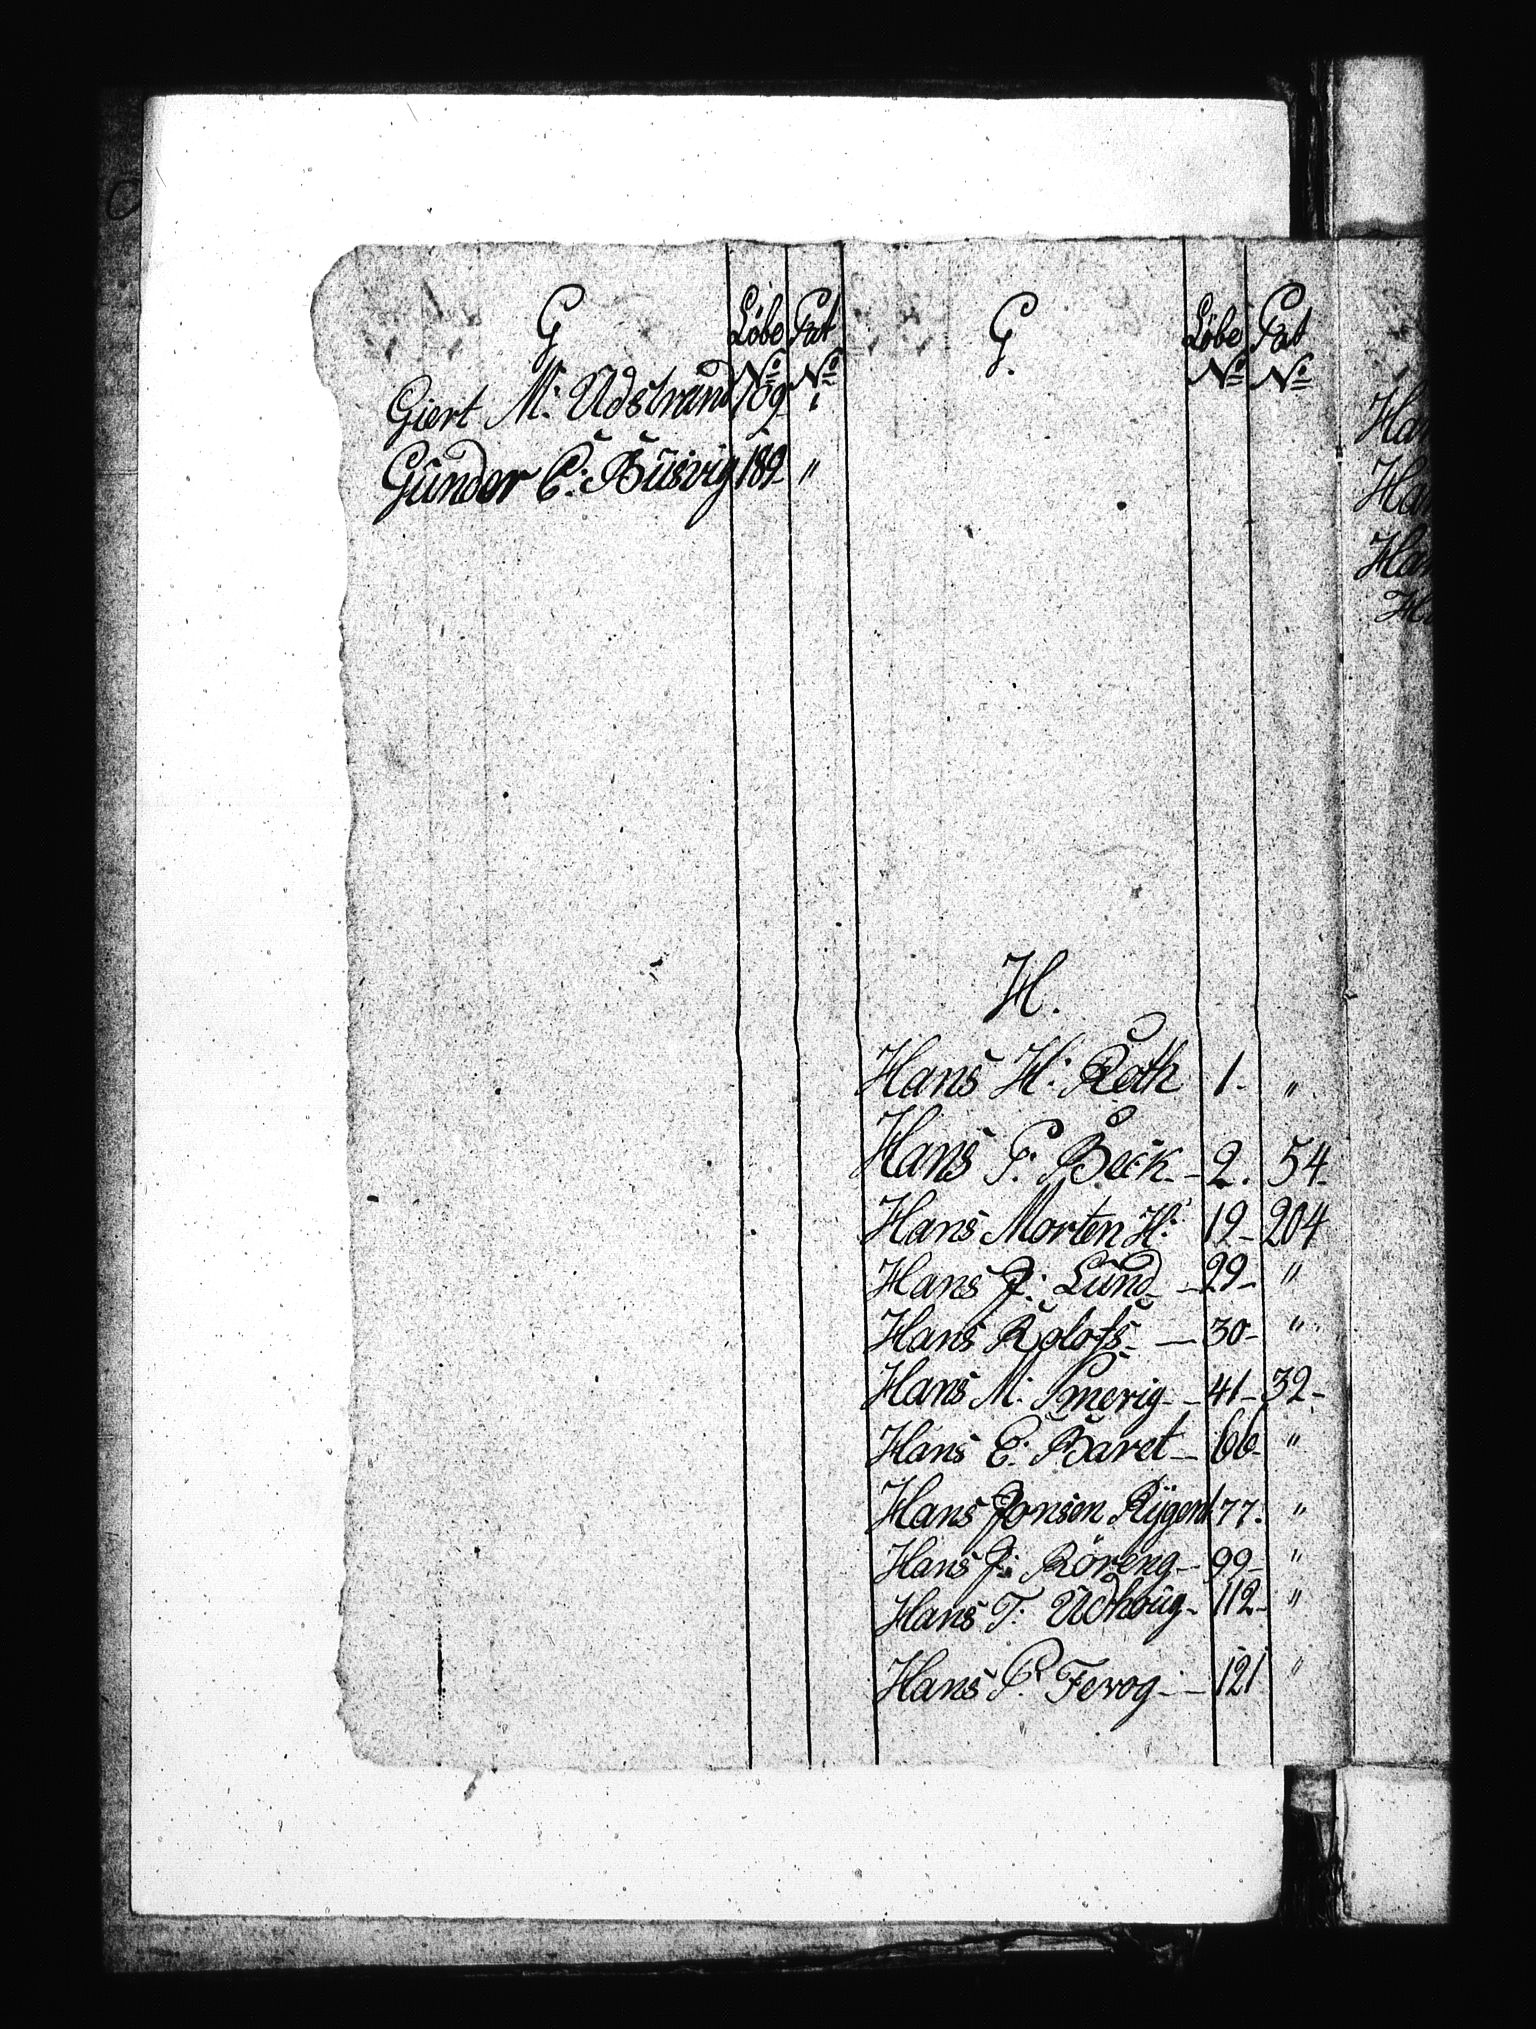 G Løbe No Pat No
Giert M: Udstrand 109 "
Gunder C: Busvig 189 "
G. Løbe No Pat No
H.
Hans H: Roth 1. "
Hans P: Beck 2. 54
Hans Morten H: 19 204
Hans J: Lund 29 "
Hans Rolofs 30 "
Hans M: Smerig 41 32
Hans E: Baret 66 "
Hans Jonsen Rÿgend 77. "
Hans J: Röreng 99 "
Hans T: Udhbug 112 "
Hans P. Fevog 121 "
Han
Han
Han